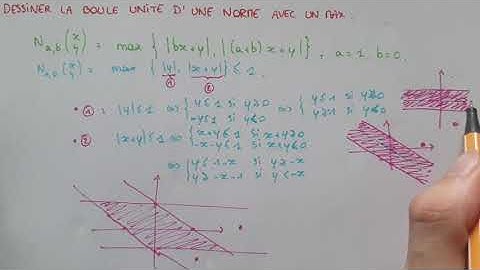 DESSINER LA BOULE UNITÉ D'UNE NORME AVEC UN MAX :
N_{a,b}(x y) = max { |bx+y|, |(a+b)x+y| }, a=1 b=0.
N_{1,0}(x y) = max { |y|, |x+y| } ≤ 1.
① ②
• ① : |y|≤1 ⇔ { y≤1 si y≥0 ⇔ { y≤1 si y≥0
-y≤1 si y≤0 y≥-1 si y≤0
• ② |x+y|≤1 ⇔ { x+y≤1 si x+y≥0
-x-y≤1 si x+y≤0
⇔ { y≤1-x si y≥-x
y≥-x-1 si y≤-x